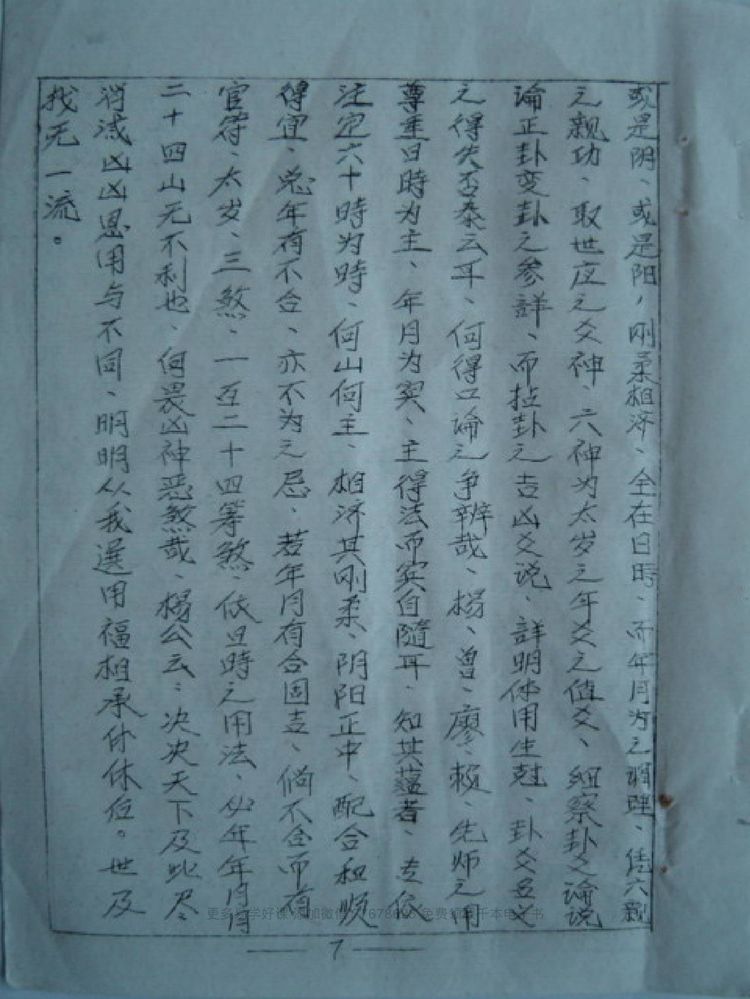 或是阴、或是阳，刚柔相济、全在日時、而年月为之调理、凭六亲
之親功、取世应之爻神、六神为太岁之年爻之值爻、細察卦爻論説
論正卦变卦之參詳、而拈卦之吉凶爻说、詳明体用生尅、卦爻名义
之得失否泰云耳、何得口論之争辨哉、楊、曾、廖、赖、先师之用
尊重日時为主、年月为宾、主得法而宾自隨耳、知其蕴者、专依
注定六十時为時、何山何主、相济其刚柔、阴阳正中、配合和順
得宜、兔年有不合、亦不为之忌、若年月有合固吉、倘不合而有
官符、太岁、三煞、一百二十四等煞、依日時之用法、必年年月月
二十四山无不利也、何畏凶神恶煞哉、楊公云：决决天下及此尽
消滅凶凶恩用与不同、明明从我選用福相承休休位。世及
找无一流。
7